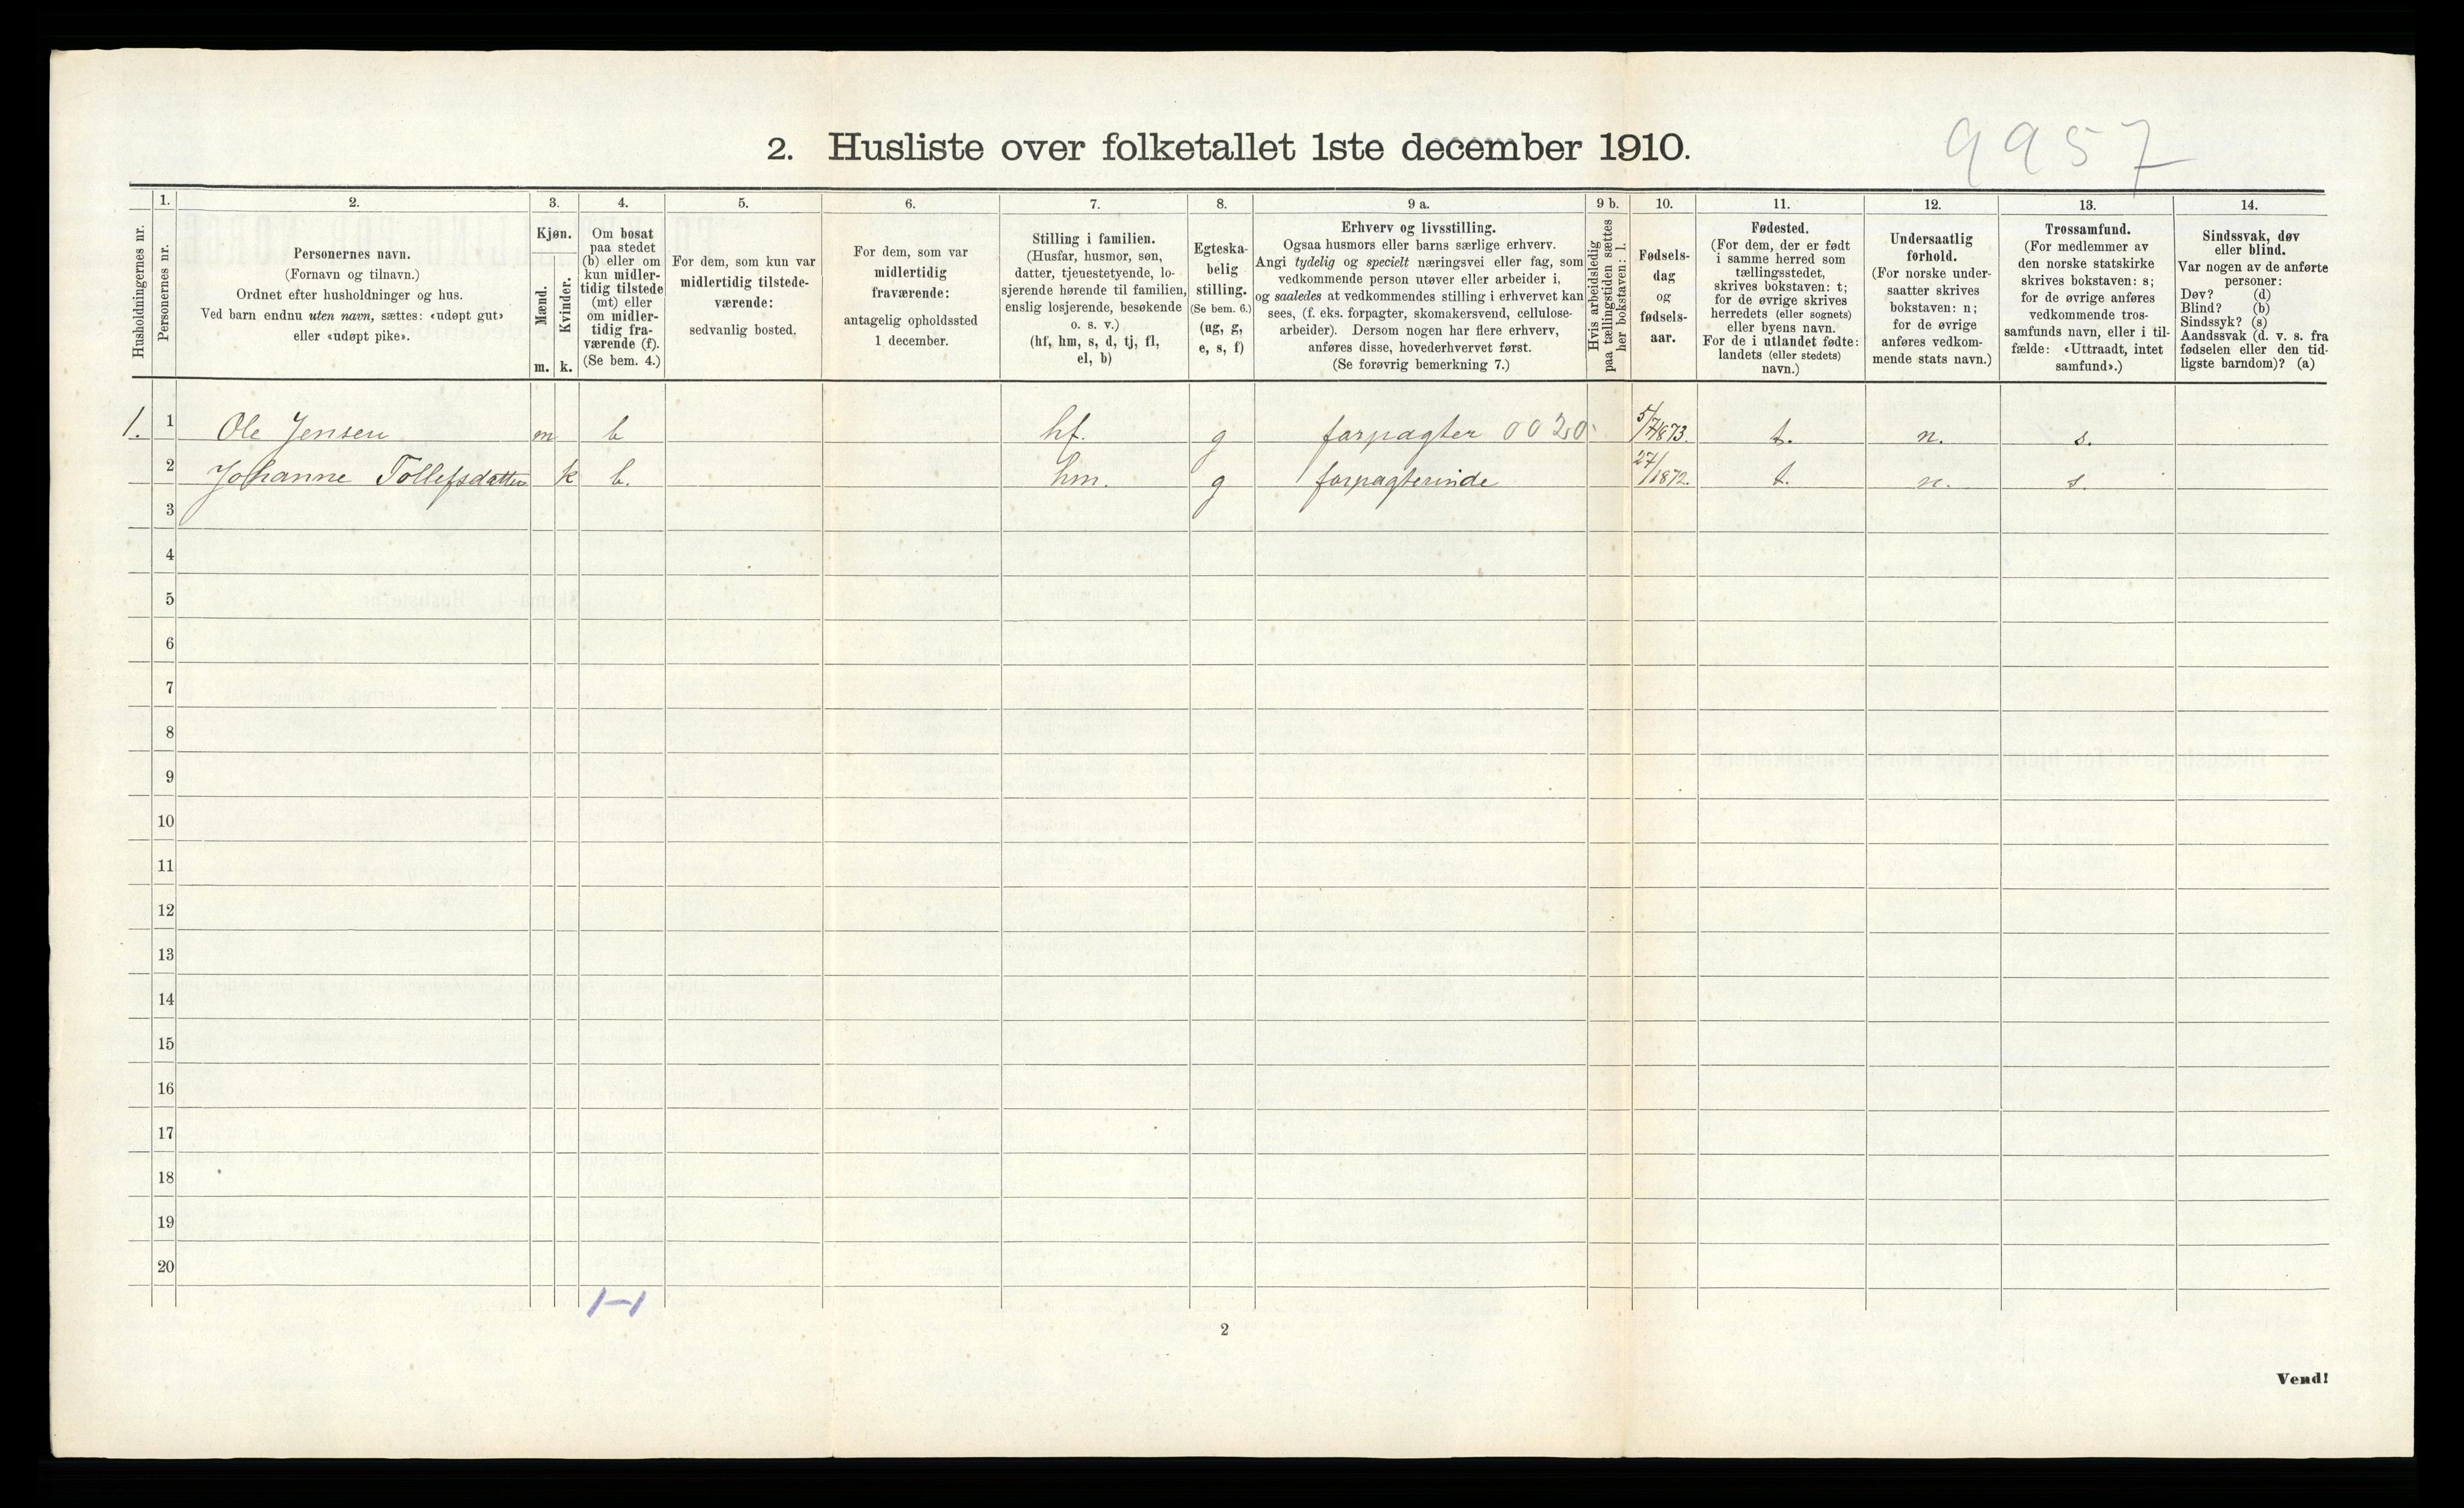 2. Husliste over folketallet 1ste december 1910.
9957
Husholdningernes nr.
1.
Personernes nr.
2.
Personernes navn.
(Fornavn og tilnavn.)
Ordnet efter husholdninger og hus.
Ved barn endnu uten navn, sættes: «udøpt gut»
eller «udøpt pike».
3.
Kjøn.
Mænd.
Kvinder.
m. k.
4.
Om bosat
paa stedet
(b) eller om
kun midler-
tidig tilstede
(mt) eller
om midler-
tidig fra-
værende (f).
(Se bem. 4.)
5.
For dem, som kun var
midlertidig tilstede-
værende:
sedvanlig bosted.
6.
For dem, som var
midlertidig
fraværende:
antagelig opholdssted
1 december.
7.
Stilling i familien.
(Husfar, husmor, søn,
datter, tjenestetyende, lo-
sjerende hørende til familien,
enslig losjerende, besøkende
o. s. v.)
(hf, hm, s, d, tj, fl,
el, b)
8.
Egteska-
belig
stilling.
(Se bem. 6.)
(ug, g,
e, s, f)
9 a.
Erhverv og livsstilling.
Ogsaa husmors eller barns særlige erhverv.
Angi tydelig og specielt næringsvei eller fag, som
vedkommende person utøver eller arbeider i,
og saaledes at vedkommendes stilling i erhvervet kan
sees, (f. eks. forpagter, skomakersvend, cellulose-
arbeider). Dersom nogen har flere erhverv,
anføres disse, hovederhvervet først.
(Se forøvrig bemerkning 7.)
9 b.
Hvis arbeidsledig
paa tællingstiden sættes
her bokstaven: l.
10.
Fødsels-
dag
og
fødsels-
aar.
11.
Fødested.
(For dem, der er født
i samme herred som
tællingsstedet,
skrives bokstaven: t;
for de øvrige skrives
herredets (eller sognets)
eller byens navn.
For de i utlandet fødte:
landets (eller stedets)
navn.)
12.
Undersaatlig
forhold.
(For norske under-
saatter skrives
bokstaven: n;
for de øvrige
anføres vedkom-
mende stats navn.)
13.
Trossamfund.
(For medlemmer av
den norske statskirke
skrives bokstaven: s;
for de øvrige anføres
vedkommende tros-
samfunds navn, eller i til-
fælde: «Uttraadt, intet
samfund».)
14.
Sindssvak, døv
eller blind.
Var nogen av de anførte
personer:
Døv? (d)
Blind? (b)
Sindssyk? (s)
Aandssvak (d. v. s. fra
fødselen eller den tid-
ligste barndom)? (a)
1. 1 Ole Jensen m b hf. g forpagter 0020 5/7 1873. t. n. s.
2 Johanne Tollefsdatter k b. hm. g forpagterinde 27/1 1872. t. n. s.
3
4
5
6
7
8
9
10
11
12
13
14
15
16
17
18
19
20
1-1
2
Vend!